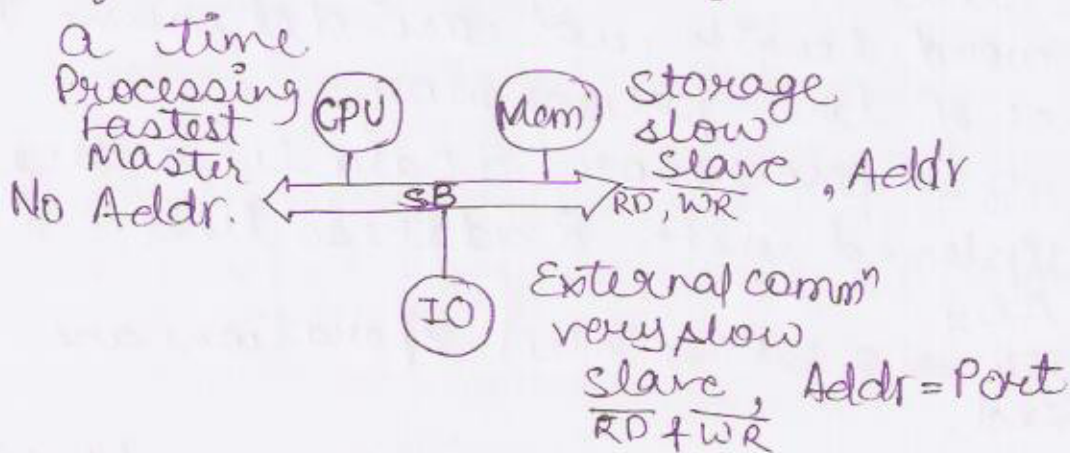 a time
Processing
Fastest
Master
No Addr.
CPU
Mem
SB
Storage
slow
Slave, Addr
R̅D̅, W̅R̅
IO
External commⁿ
very slow
Slave, Addr = Port
R̅D̅ + W̅R̅